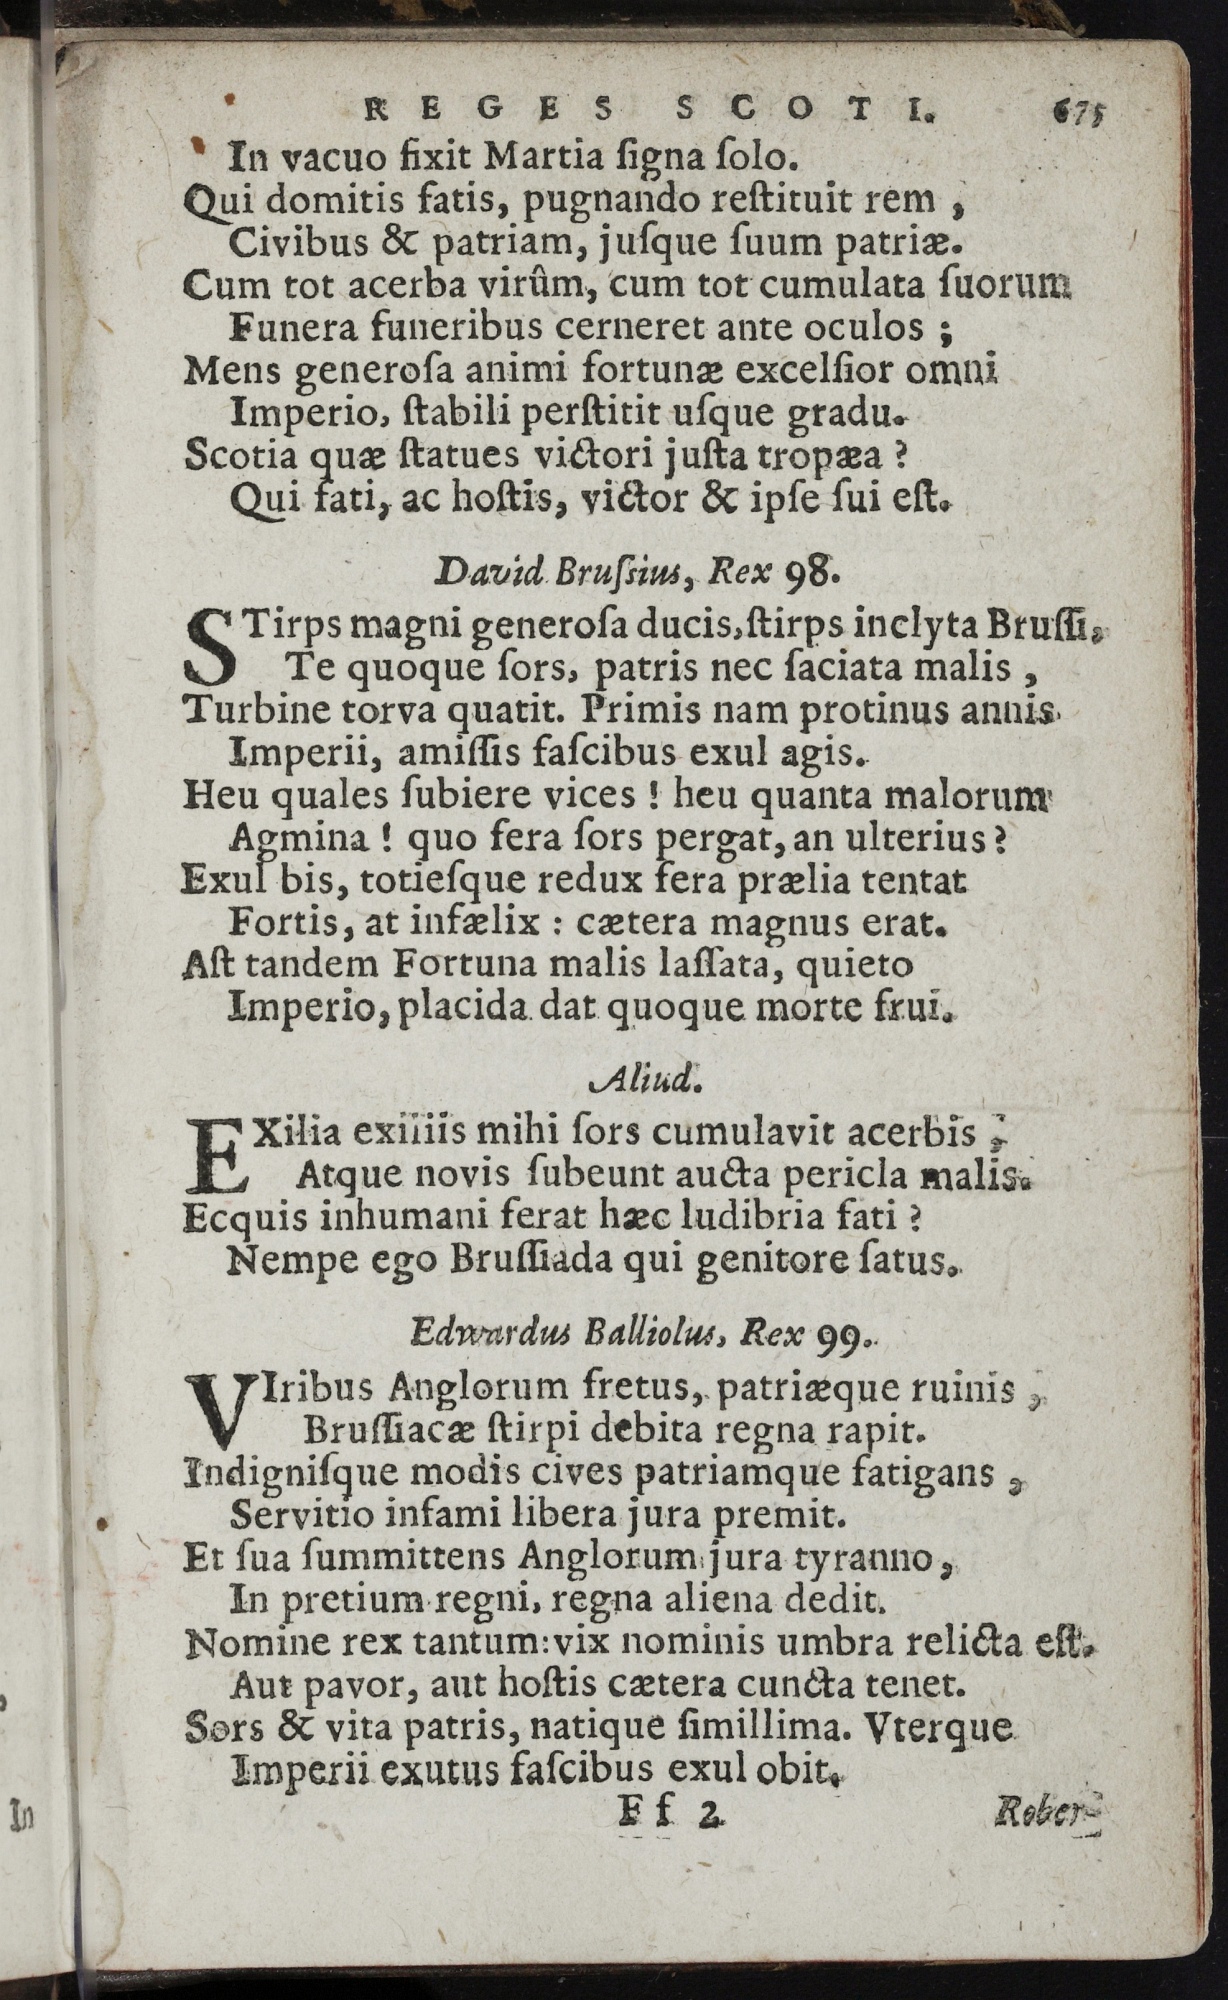 REGES SCOTI. 675
In vacuo fixit Martia ſigna ſolo.
Qui domitis fatis, pugnando reſtituit rem ,
Civibus & patriam, juſque ſuum patriæ.
Cum tot acerba virûm, cum tot cumulata ſuorum
Funera funeribus cerneret ante oculos ;
Mens generoſa animi fortunæ excelſior omni
Imperio, ſtabili perſtitit uſque gradu.
Scotia quæ ſtatues victori juſta tropæa ?
Qui fati, ac hoſtis, victor & ipſe ſui eſt.
David Bruſsius, Rex 98.
STirps magni generoſa ducis, ſtirps inclyta Bruſſi,
Te quoque ſors, patris nec ſaciata malis ,
Turbine torva quatit. Primis nam protinus annis
Imperii, amiſſis faſcibus exul agis.
Heu quales ſubiere vices ! heu quanta malorum
Agmina ! quo fera ſors pergat, an ulterius ?
Exul bis, totieſque redux fera prælia tentat
Fortis, at infælix : cætera magnus erat.
Aſt tandem Fortuna malis laſſata, quieto
Imperio, placida dat quoque morte frui.
Aliud.
EXilia exiliis mihi ſors cumulavit acerbis ;
Atque novis ſubeunt aucta pericla malis.
Ecquis inhumani ferat hæc ludibria fati ?
Nempe ego Bruſſiada qui genitore ſatus.
Edwardus Balliolus, Rex 99.
VIribus Anglorum fretus, patriæque ruinis ,
Bruſſiacæ ſtirpi debita regna rapit.
Indigniſque modis cives patriamque fatigans ,
Servitio infami libera jura premit.
Et ſua ſummittens Anglorum jura tyranno,
In pretium regni, regna aliena dedit.
Nomine rex tantum: vix nominis umbra relicta eſt.
Aut pavor, aut hoſtis cætera cuncta tenet.
Sors & vita patris, natique ſimillima. Vterque
Imperii exutus faſcibus exul obit.
Ff 2 Rober-
In